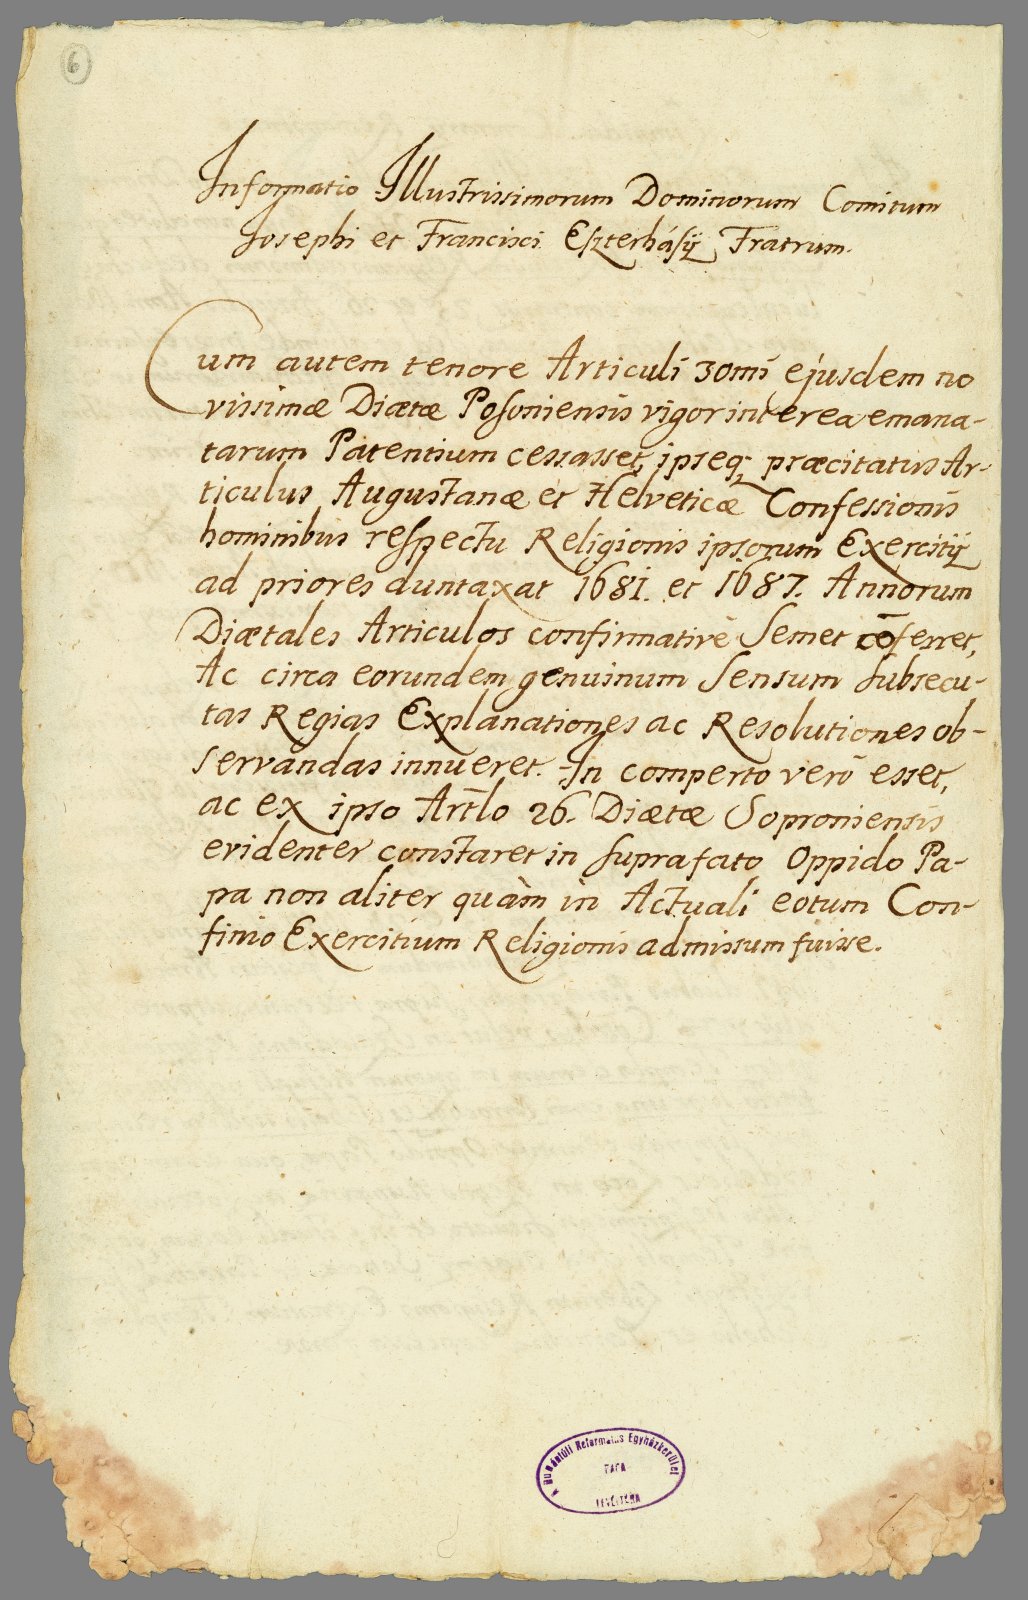 6
Informatio Illustrissimorum Dominorum Comitum
Josephi et Francisci Eszterhásÿ Fratrum.
Cum autem tenore Articuli 30mi ejusdem no
vissimæ Diætæ Posoniensis vigor interea emana-
tarum Patentium cessasset, ipseq; præcitatus Ar-
ticulus Augustanæ et Helveticæ Confessionis
hominibus respectu Religionis ipsorum Exercitÿ
ad priores duntaxat 1681. et 1687. Annorum
Diætales Articulos confirmativè Semet cōferret,
Ac circa eorundem genuinum Sensum subsecu-
tas Regias Explanationes ac Resolutiones ob-
servandas innueret. In comperto verò esset,
ac ex ipso Art̄lo 26. Diætæ Soproniensis
evidenter constaret in suprafato Oppido Pa-
pa non aliter quàm in Actuali eotum Con-
finio Exercitium Religionis admissum fuisse.
A Dunántúli Református Egyházkerület
PÁPA
LEVÉLTÁRA